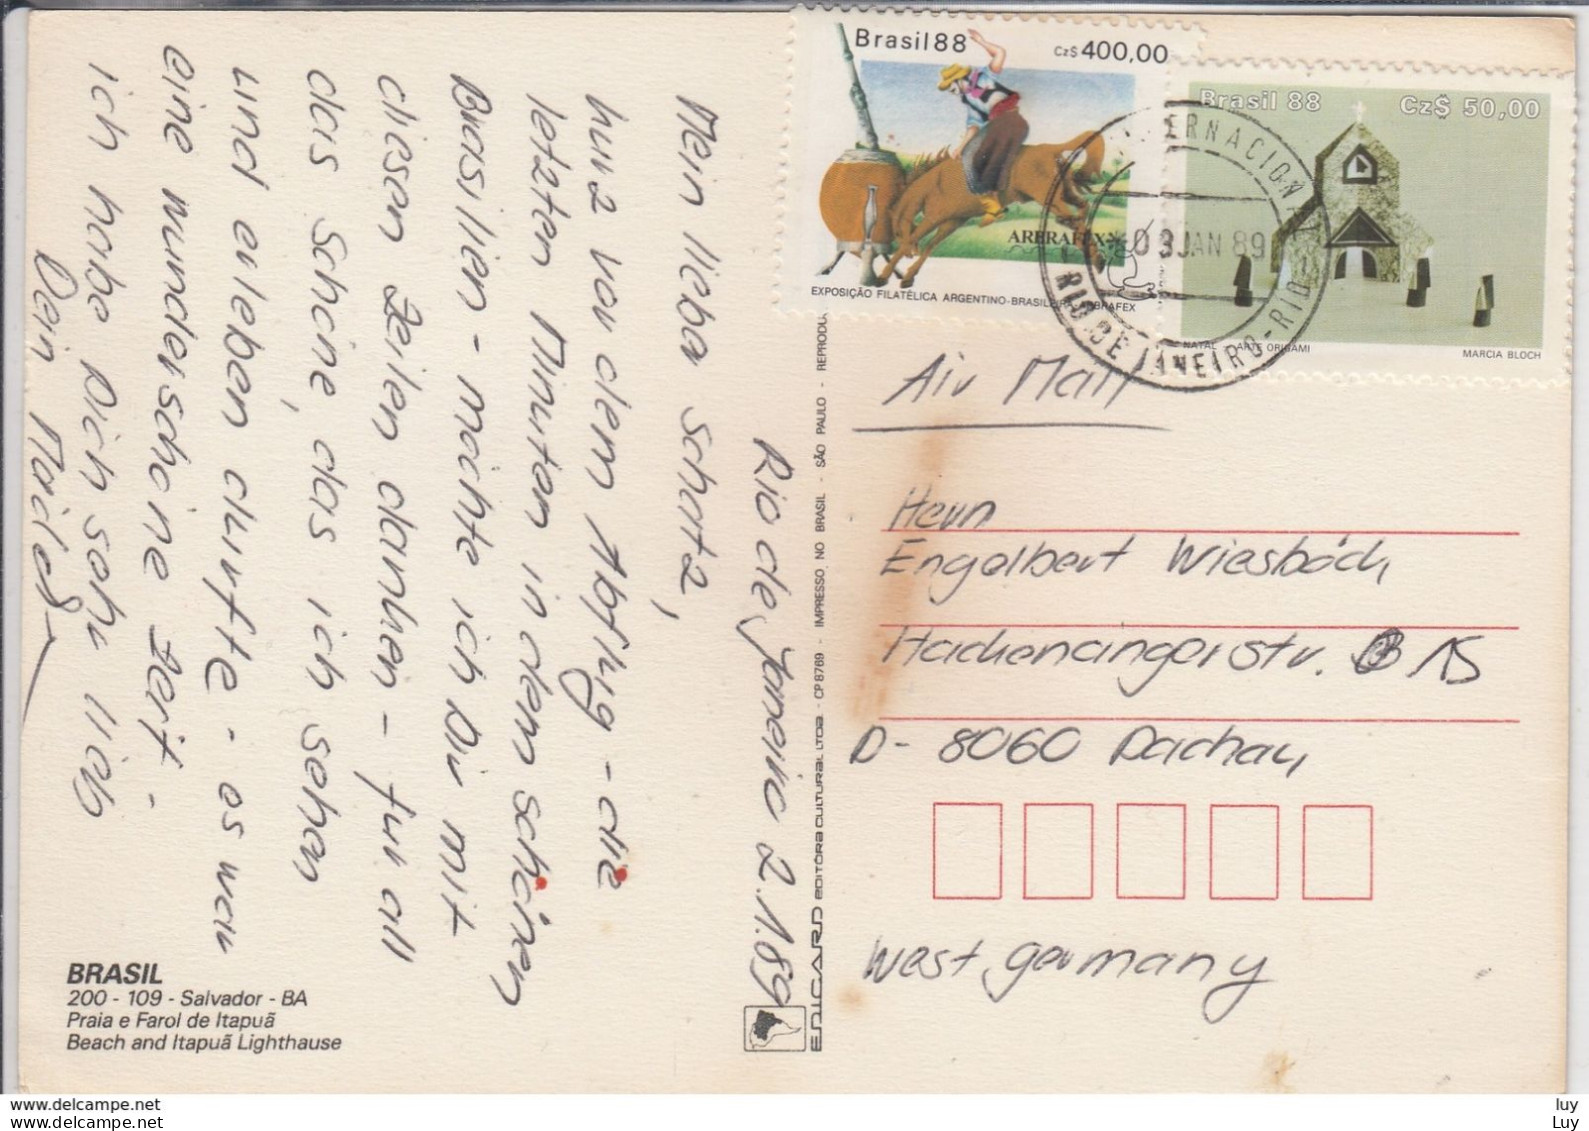 Brasil 88 Cz$ 400,00
ARBRAFEX
EXPOSIÇÃO FILATÉLICA ARGENTINO-BRASILEIRA-ARBRAFEX
Brasil 88 Cz$ 50,00
NATAL - ARTE ORIGAMI MARCIA BLOCH
INTERNACIONAL
03 JAN 89
RIO DE JANEIRO-RIO
Rio de Janeiro 2.1.89
Mein lieber Schatz,
kurz vor dem Abflug - die
letzten Minuten in dem schönen
Brasilien - möchte ich Dir mit
diesen Zeilen danken - für all
das Schöne, das ich sehen
und erleben durfte - es war
eine wunderschöne Zeit -
ich habe Dich sehr lieb
Dein
BRASIL
200 - 109 - Salvador - BA
Praia e Farol de Itapuã
Beach and Itapuã Lighthause
EDICARD EDITÔRA CULTURAL LTDA - CP 8769 - IMPRESSO NO BRASIL - SÃO PAULO - REPRODU
Air Mail
Herrn
Engelbert Wiesböck
Hackenangerstr. 15
D- 8060 Dachau
West germany
www.delcampe.net
www.delcampe.net
luy
Luy